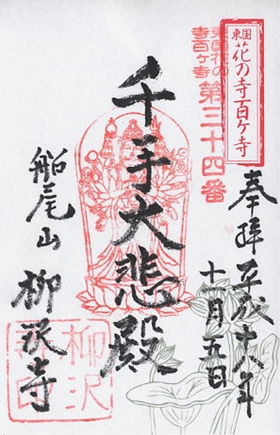 東国花の寺百ヶ寺
東国花の
寺百ヶ寺
第三十四番
奉拝
平成十八年
十一月五日
千手大悲殿
船尾山
柳沢寺
柳沢